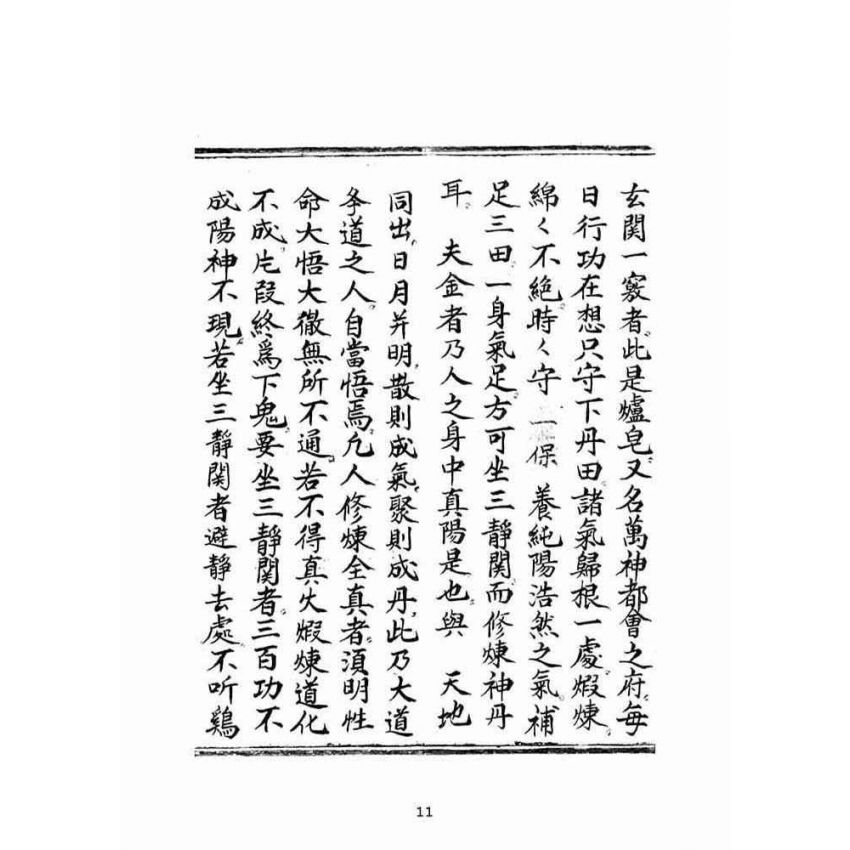 玄関一竅者此是爐皂又名萬神都會之府每
日行功在想只守下丹田諸氣歸根一處煆煉
綿々不絶時々守一保養純陽浩然之氣補
足三田一身氣足方可坐三靜関而修煉神丹
耳 夫金者乃人之身中真陽是也與 天地
同出日月并明散則成氣聚則成丹此乃大道
夆道之人自當悟焉凢人修煉全真者湏明性
命大悟大徹無所不通若不得真火煆煉道化
不成片段終爲下鬼要坐三靜関者三百功不
成陽神不現若坐三靜関者避静去處不听鷄
11